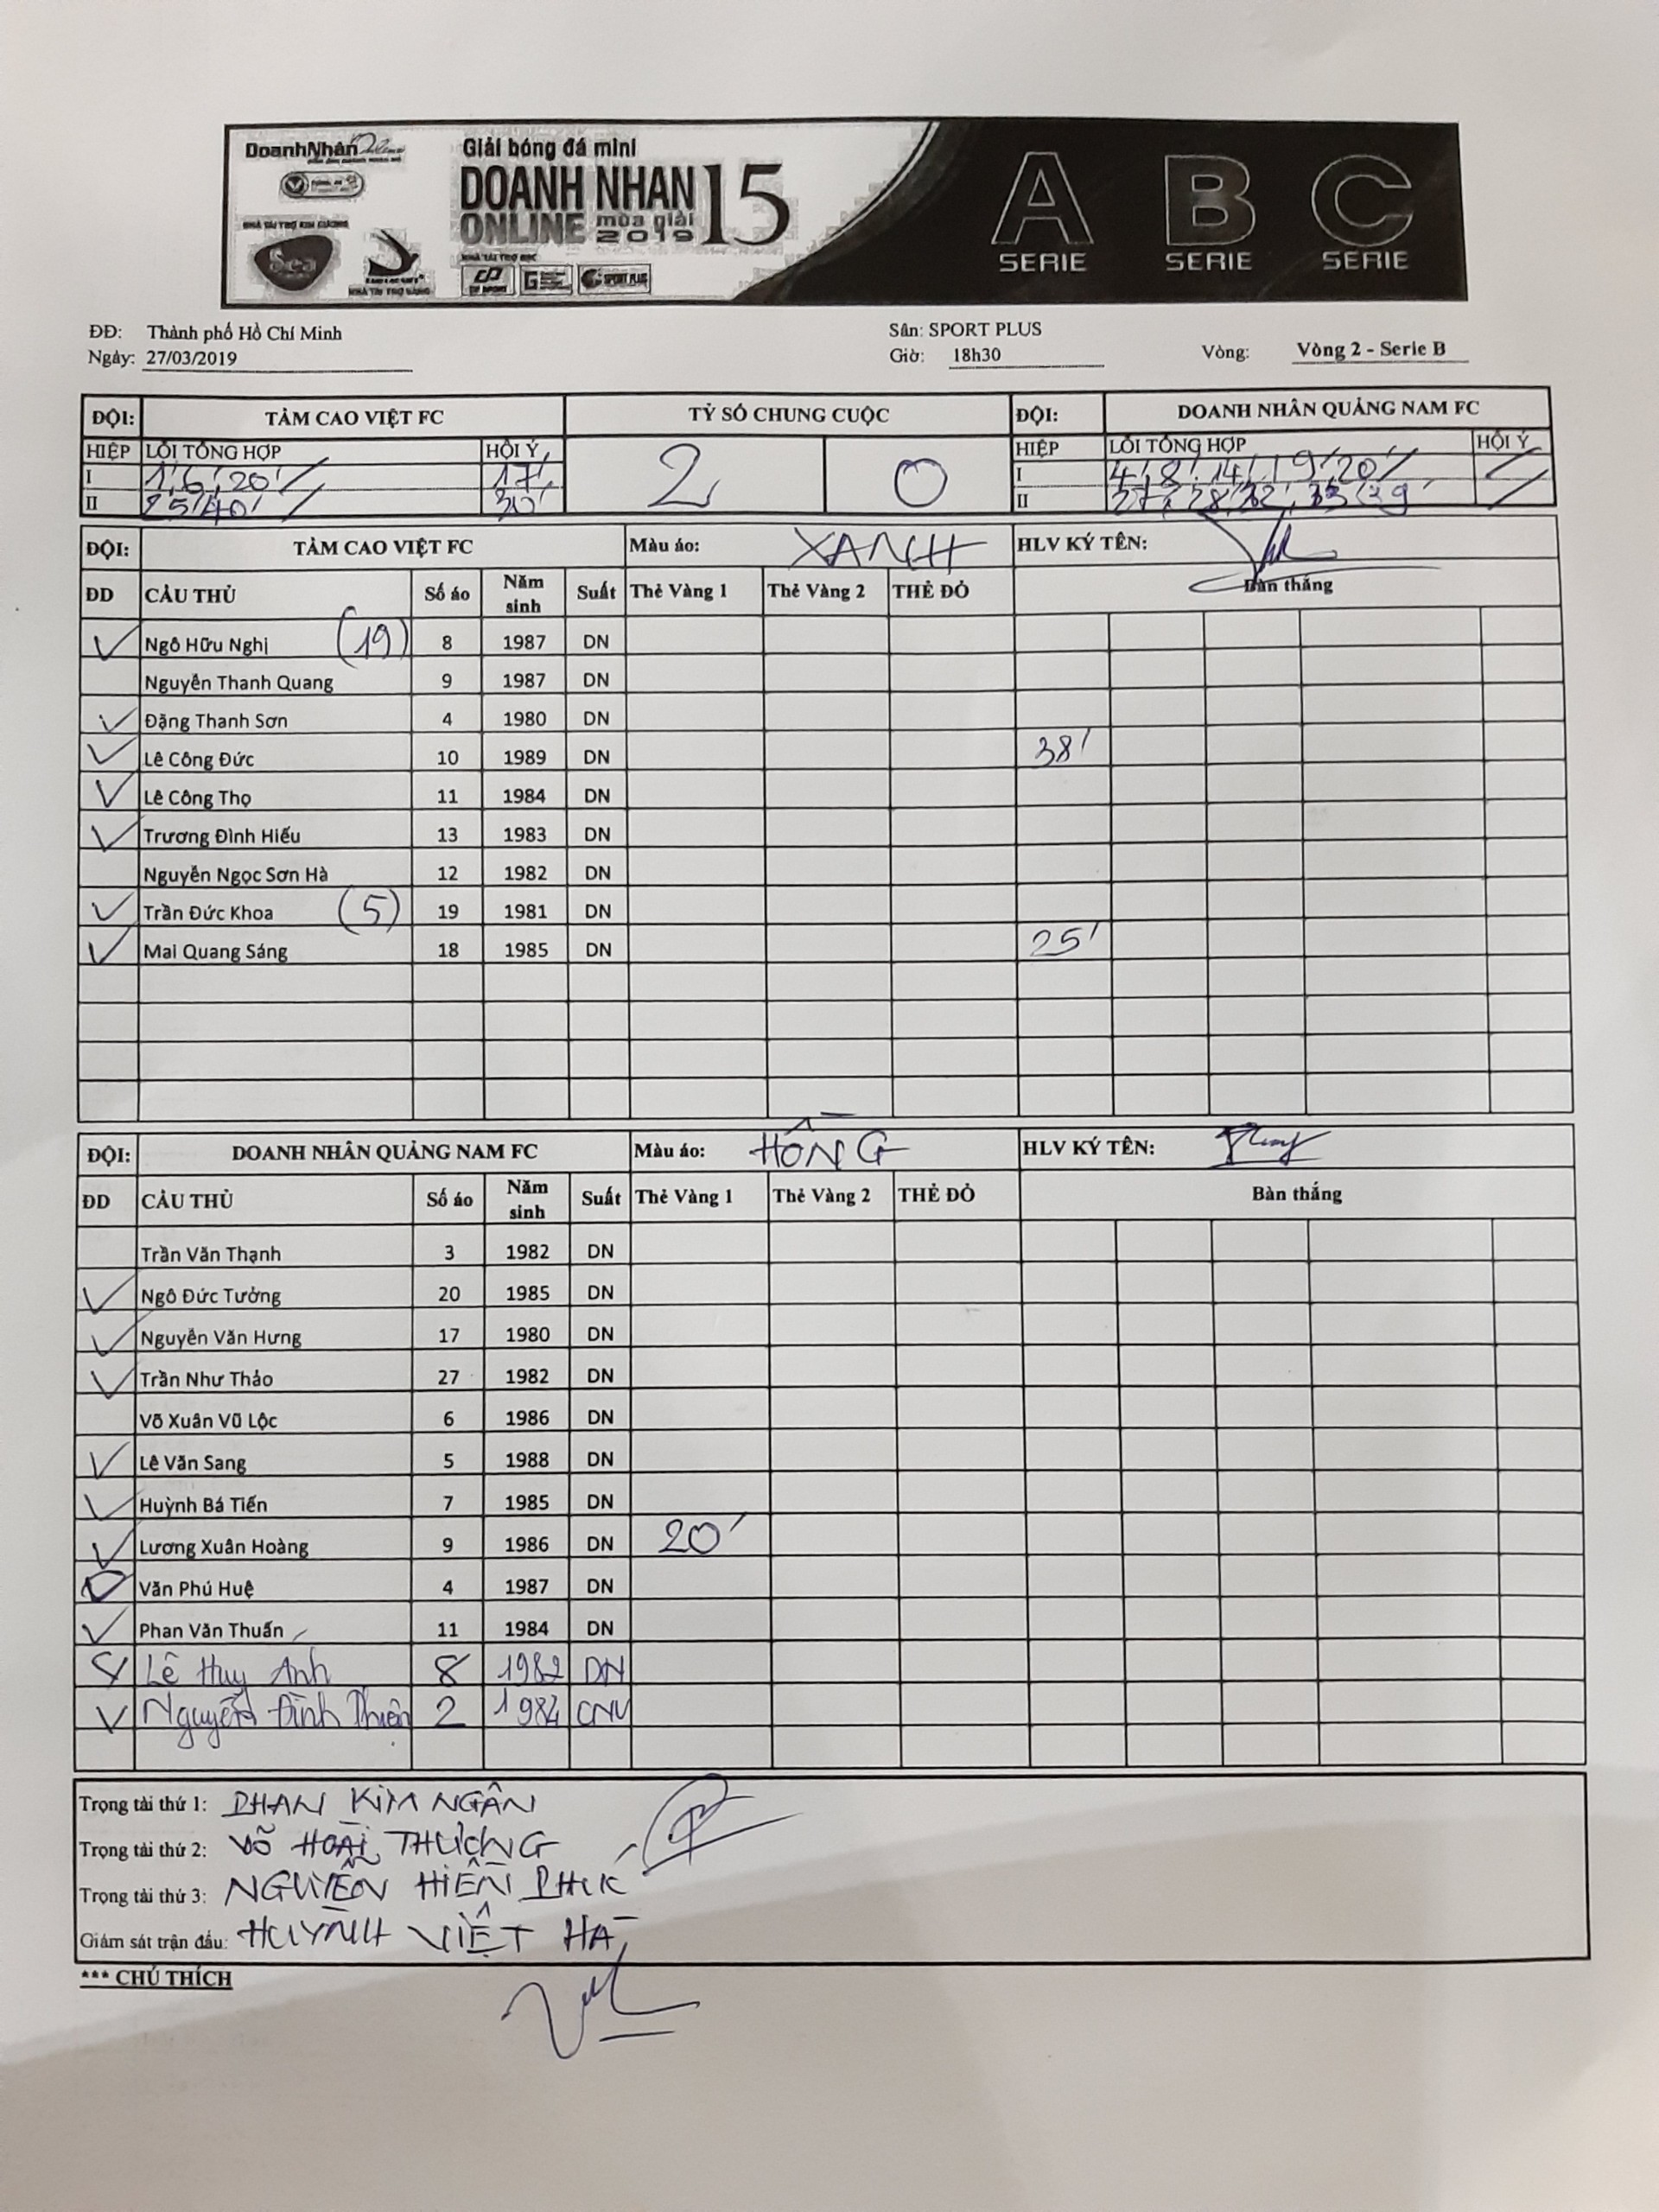 DoanhNhân Online
Giải bóng đá mini
DOANH NHAN 15
ONLINE mùa giải 2019
NHÀ TÀI TRỢ KIM CƯƠNG
Sea
NHÀ TÀI TRỢ VÀNG
NHÀ TÀI TRỢ BẠC
SPORT PLUS
A B C
SERIE SERIE SERIE
ĐĐ: Thành phố Hồ Chí Minh Sân: SPORT PLUS
Ngày: 27/03/2019 Giờ: 18h30 Vòng: Vòng 2 - Serie B
ĐỘI: TẦM CAO VIỆT FC TỶ SỐ CHUNG CUỘC ĐỘI: DOANH NHÂN QUẢNG NAM FC
HIỆP LỖI TỔNG HỢP HỘI Ý 2 0 HIỆP LỖI TỔNG HỢP HỘI Ý
I 1', 6', 20' 17' I 4', 8', 14', 19', 20'
II 25' 40' 30' II 27', 28', 32', 33', 39'
ĐỘI: TẦM CAO VIỆT FC Màu áo: XANH HLV KÝ TÊN:
ĐD CẦU THỦ Số áo Năm sinh Suất Thẻ Vàng 1 Thẻ Vàng 2 THẺ ĐỎ Bàn thắng
Ngô Hữu Nghị (19) 8 1987 DN
Nguyễn Thanh Quang 9 1987 DN
Đặng Thanh Sơn 4 1980 DN
Lê Công Đức 10 1989 DN 38'
Lê Công Thọ 11 1984 DN
Trương Đình Hiếu 13 1983 DN
Nguyễn Ngọc Sơn Hà 12 1982 DN
Trần Đức Khoa (5) 19 1981 DN
Mai Quang Sáng 18 1985 DN 25'
ĐỘI: DOANH NHÂN QUẢNG NAM FC Màu áo: HỒNG HLV KÝ TÊN:
ĐD CẦU THỦ Số áo Năm sinh Suất Thẻ Vàng 1 Thẻ Vàng 2 THẺ ĐỎ Bàn thắng
Trần Văn Thạnh 3 1982 DN
Ngô Đức Tưởng 20 1985 DN
Nguyễn Văn Hưng 17 1980 DN
Trần Như Thảo 27 1982 DN
Võ Xuân Vũ Lộc 6 1986 DN
Lê Văn Sang 5 1988 DN
Huỳnh Bá Tiến 7 1985 DN
Lương Xuân Hoàng 9 1986 DN 20'
Văn Phú Huệ 4 1987 DN
Phan Văn Thuấn 11 1984 DN
Lê Huy Anh 8 1982 DN
Nguyễn Đình Thiện 2 1984 CNV
Trọng tài thứ 1: PHAN KIM NGÂN
Trọng tài thứ 2: VÕ HOÀI THƯƠNG
Trọng tài thứ 3: NGUYỄN HIỀN PHÚC
Giám sát trận đấu: HUỲNH VIỆT HÀ
*** CHÚ THÍCH